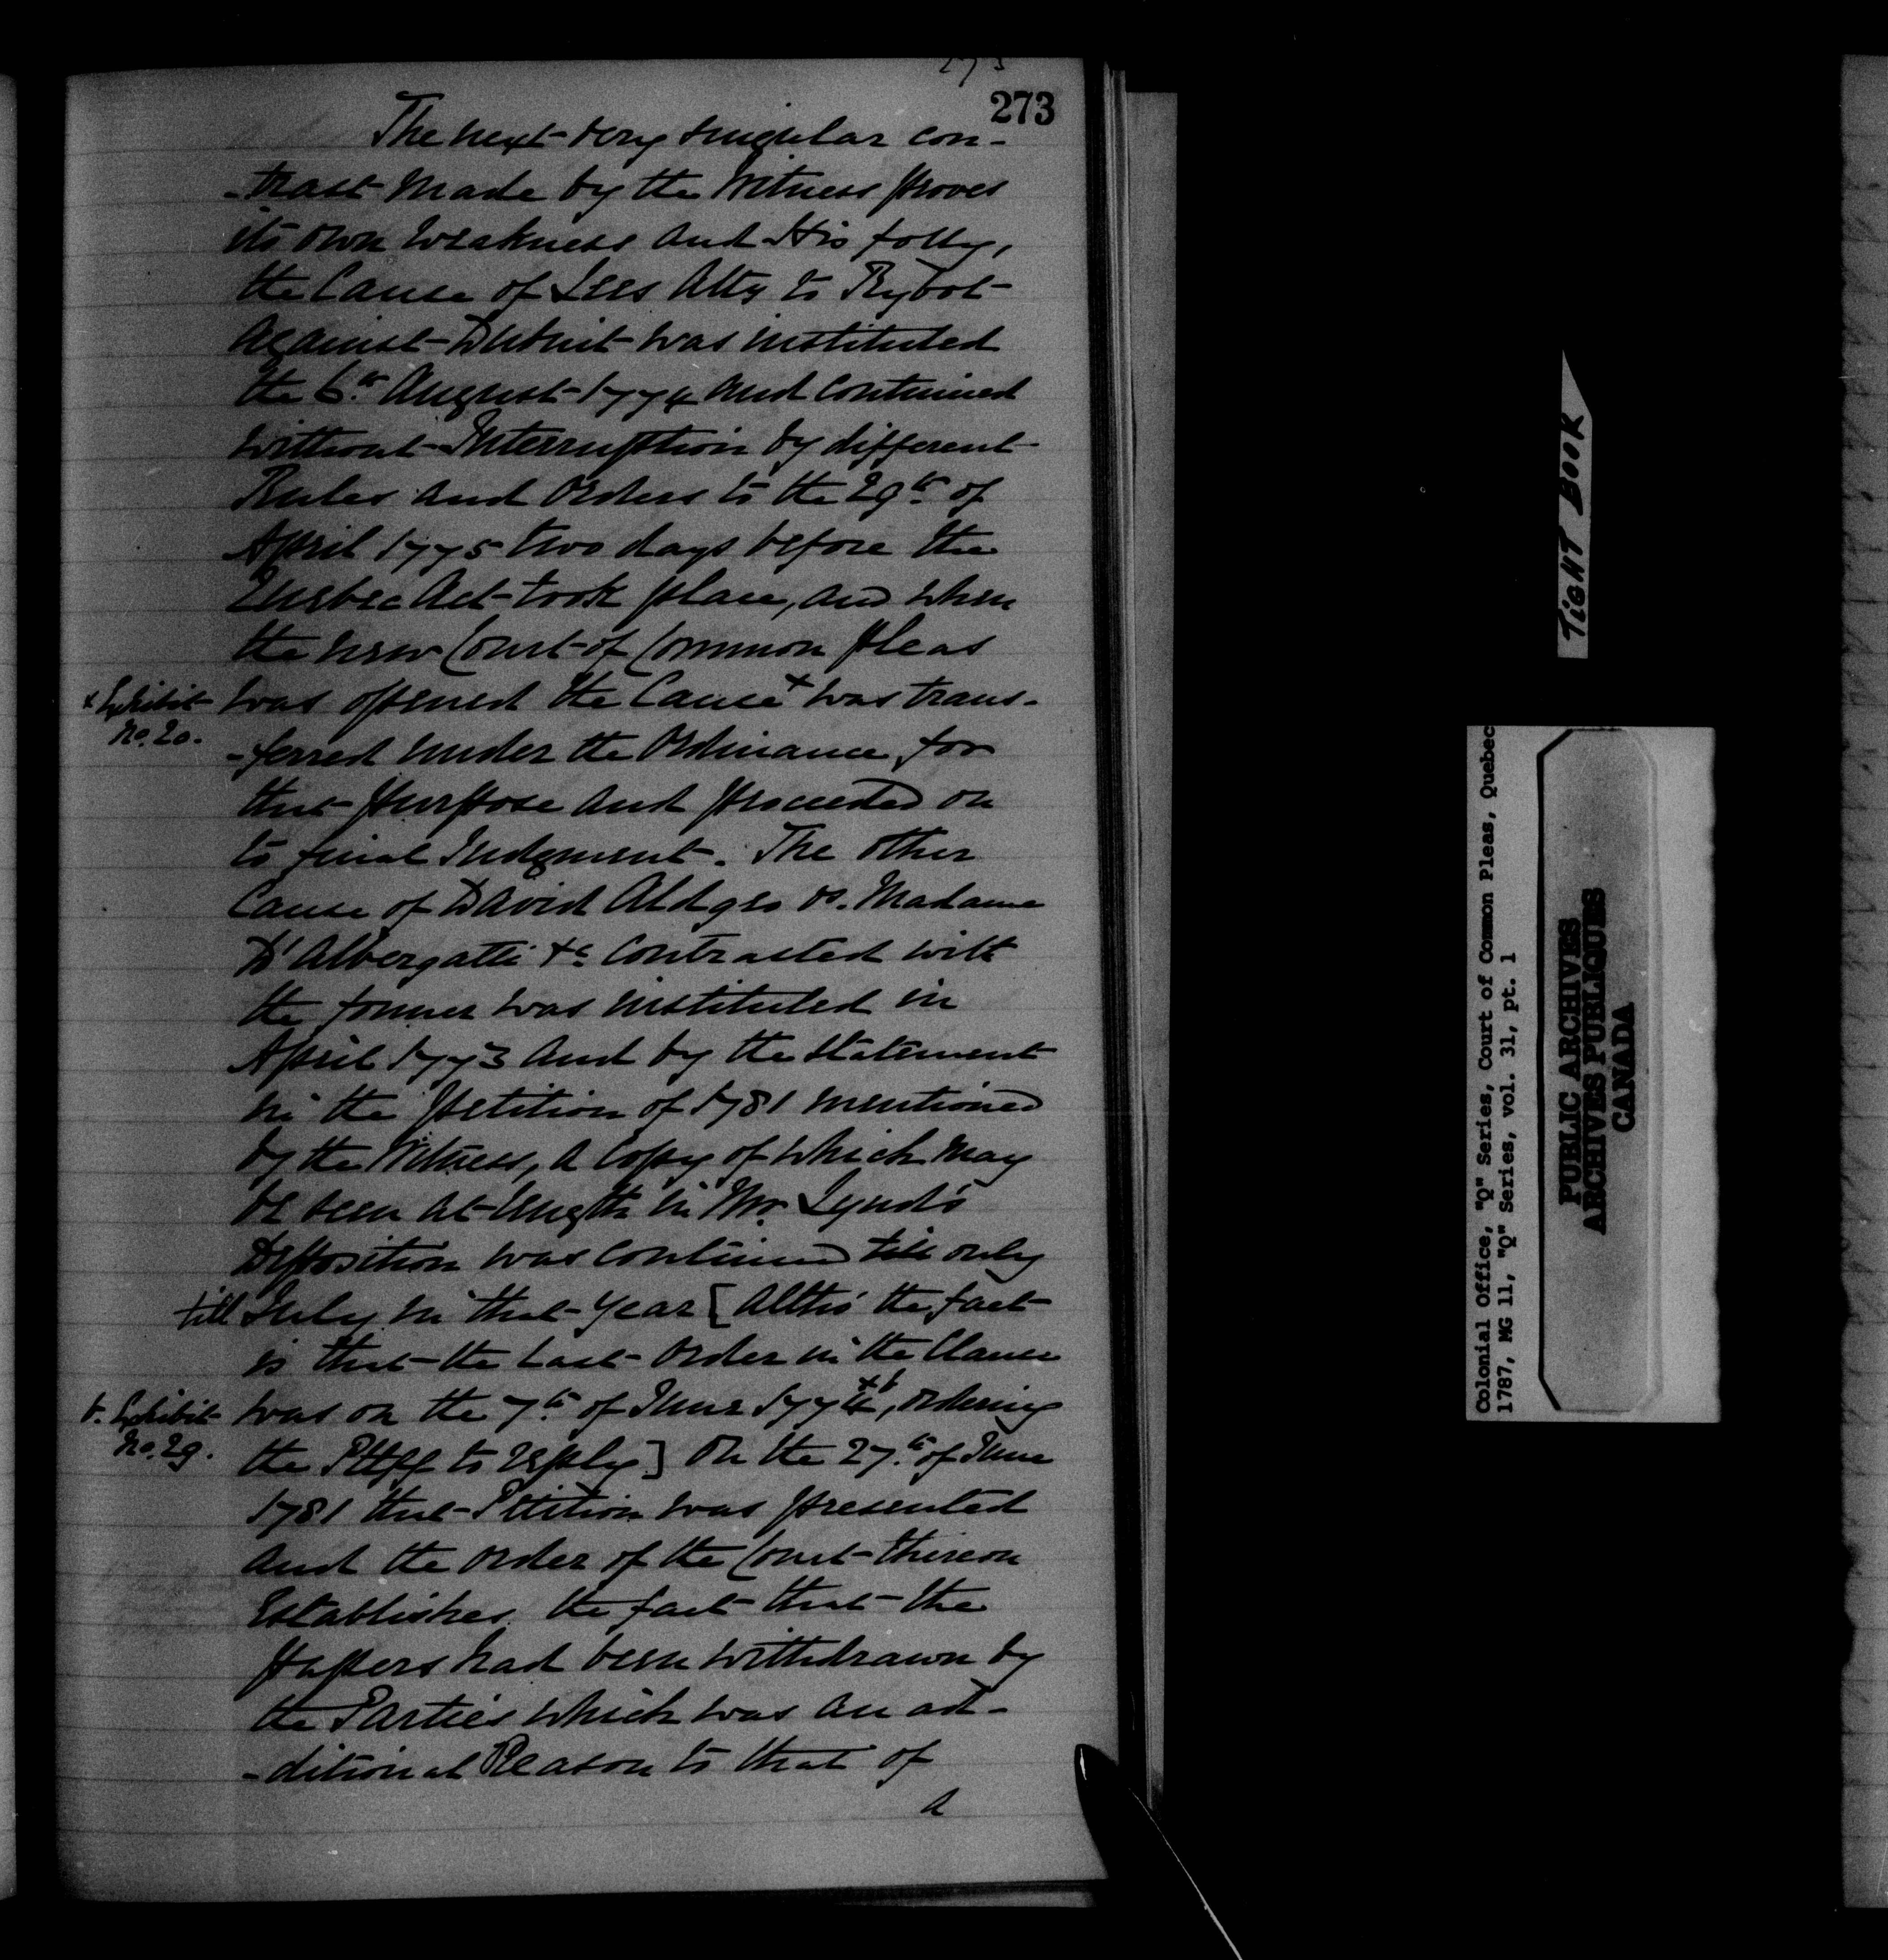 273
273
The next very singular con-
-trast made by the Witness proves
its own weakness and His folly,
the Cause of Lees Atty to Rybot
against Dubuit was instituted
the 6.th August 1774 and continued
without Interruption by different
Rules and Orders to the 29.th of
April 1775 two days before the
Quebec Act took place, and when
the new Court of Common pleas
x Exhibit
No. 20.
was opened the Cause x was trans-
-ferred under the Ordinance for
that purpose and proceeded on
to final Judgment. The other
Cause of David Aldges vs. Madame
D'Albergatti &c contrasted with
the former was instituted in
April 1773 and by the statement
in the petition of 1781 mentioned
by the Witness, a Copy of which may
be seen at length in Mr. Lynd's
Deposition was continued till only
till July in that year [Altho' the fact
is that the Last Order in the Clause
t. Exhibit
No. 29.
was on the 7.th of June 1774 xt, ordering
the Pltff to reply] On the 27.th of June
1781 that Petition was presented
and the order of the Court thereon
Establishes the fact that the
papers had been withdrawn by
the Parties which was an ad-
-ditional Reason to that of
a
TIGHT BOOK
Colonial Office, "Q" Series, Court of Common Pleas, Quebec
1787, MG 11, "Q" Series, vol. 31, pt. 1
PUBLIC ARCHIVES
ARCHIVES PUBLIQUES
CANADA